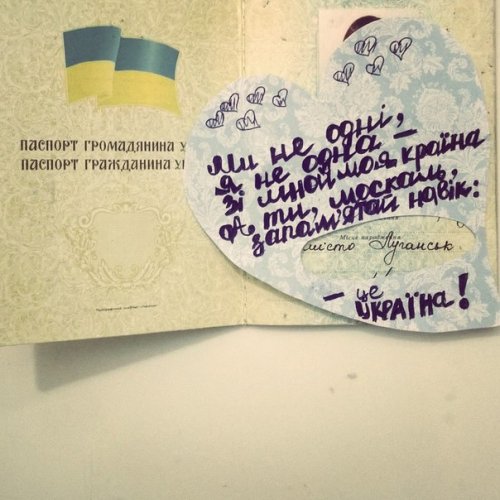 ПАСПОРТ ГРОМАДЯНИНА У
ПАСПОРТ ГРАЖДАНИНА УК
Ми не одні,
я не одна –
зі мной моя країна
А, ти, москаль,
запам'ятай навік:
Місце народження
місто Луганськ
– це
УКРАЇНА!